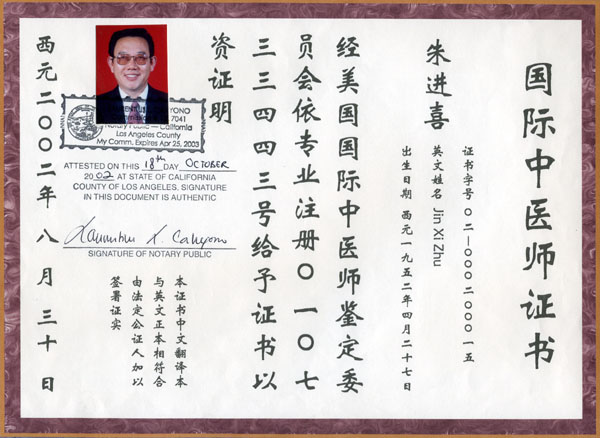 国际中医师证书
证书字号 〇二-〇〇〇二〇〇〇一五
朱进喜 英文姓名 Jin Xi Zhu
出生日期 西元一九五二年四月二十七日
经美国国际中医师鉴定委
员会依专业注册〇一〇七
三三四四三号给予证书以
资证明
7041
Notary Public – California
Los Angeles County
My Comm. Expires Apr 25, 2003
ATTESTED ON THIS 18th DAY OCTOBER
2002 AT STATE OF CALIFORNIA
COUNTY OF LOS ANGELES. SIGNATURE
IN THIS DOCUMENT IS AUTHENTIC
SIGNATURE OF NOTARY PUBLIC
本证书中文翻译本
与英文正本相符合
由法定公证人加以
签署证实
西元二〇〇二年八月三十日